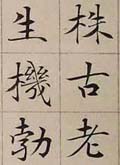 株古老
生機勃